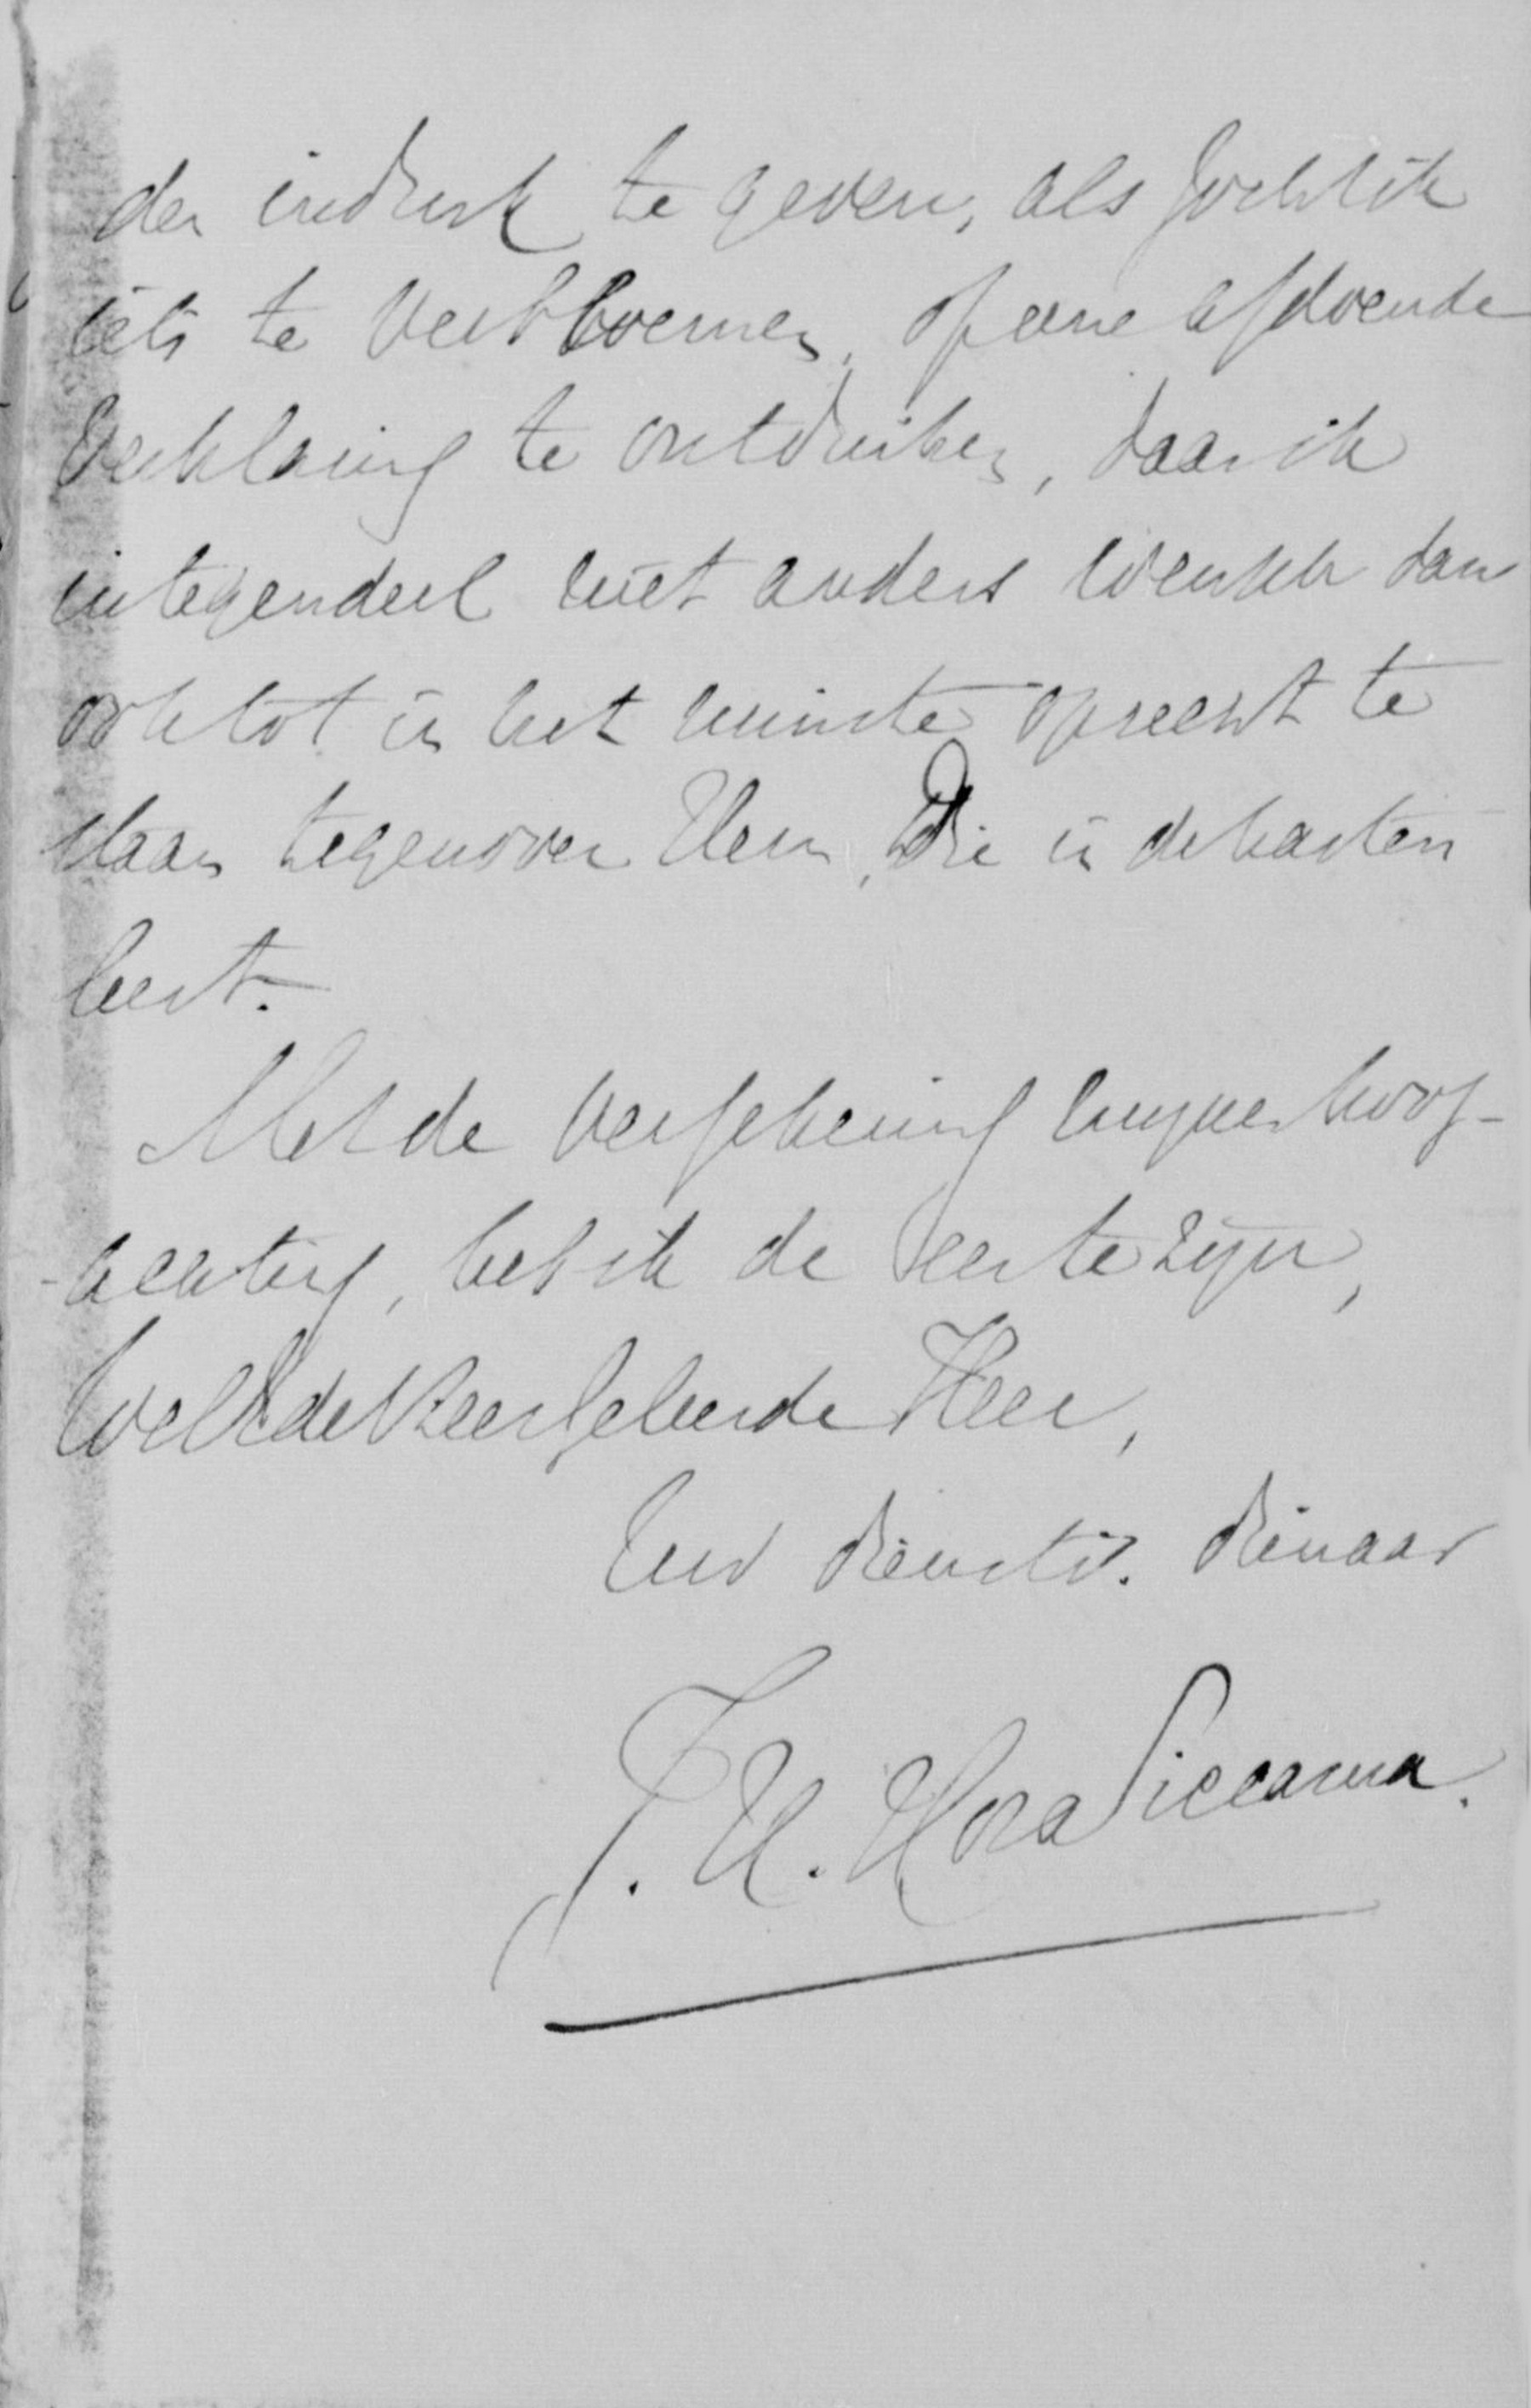 den indruk te geven, als zocht ik
iets te verbloemen, of eene afdoende
verklaring te ontduiken, daar ik
integendeel niet anders wensch dan
ook tot in het minste oprecht te
staan tegenover Hem, Die in de harten
leest.
Met de verzekering mijner hoog-
-achting, heb ik de eer te zijn,
WelEdelZeerGeleerde Heer,
Uw dienstv. dienaar
J. H. Hora Siccama.